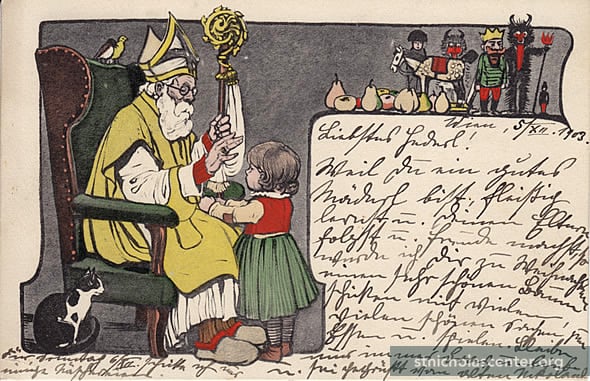 Wien, 5/XII. 1903.
Liebstes Hederl!
Weil du ein gutes
Mäderl bist, fleißig
lernst u. deinen Eltern
folgst u. Freude machst, so
werde ich dir zu Weihnachten
einen sehr schönen Baum
schicken mit vielen
vielen schönen Sachen! Zum
Essen u. Spielen. Bleib
nur immer
u. sei
stnicholascenter.org